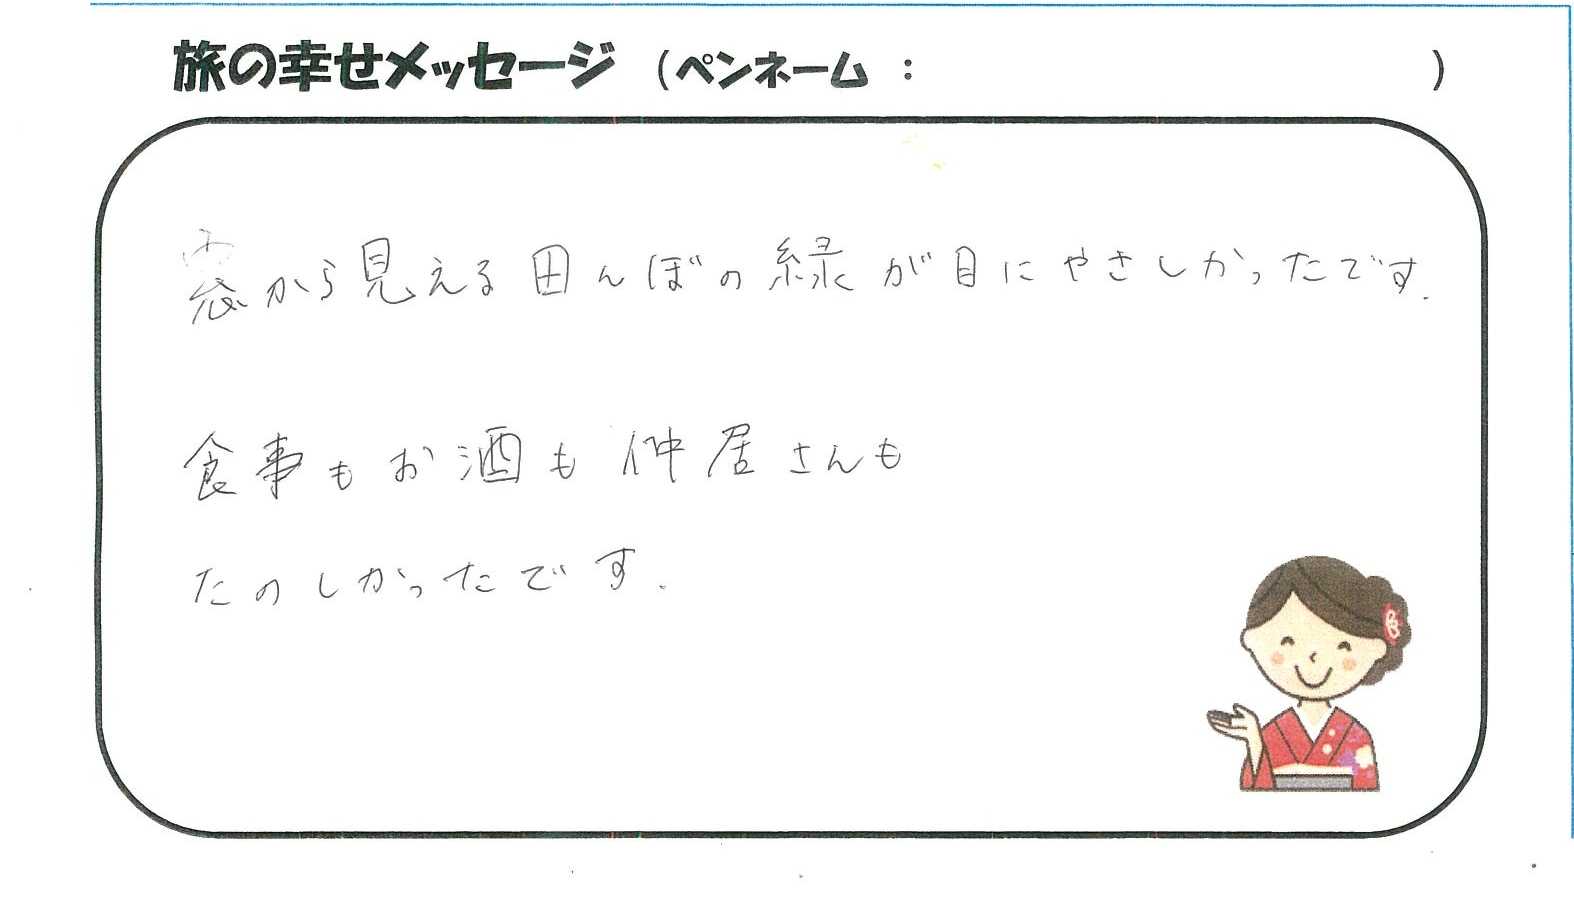 旅の幸せメッセージ (ペンネーム : )
窓から見える田んぼの緑が目にやさしかったです.
食事もお酒も仲居さんも
たのしかったです.